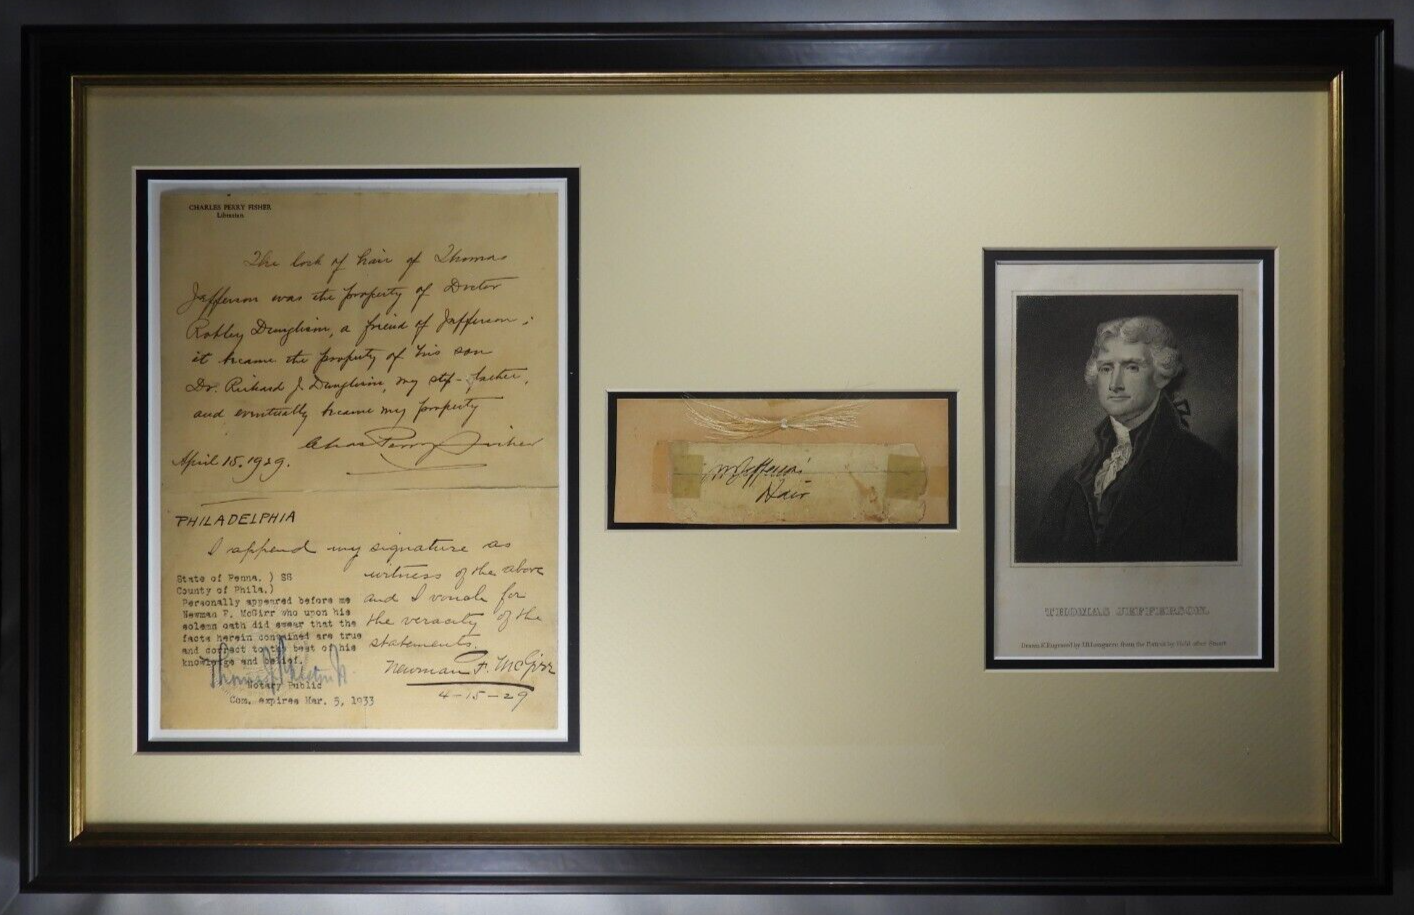 CHARLES PERRY FISHER
Librarian
The lock of hair of Thomas
Jefferson was the property of Doctor
Robley Dunglison, a friend of Jefferson;
it became the property of his son
Dr. Richard J. Dunglison, my step-father,
and eventually became my property
Chas Perry Fisher
April 15. 1929.
PHILADELPHIA
I append my signature as
witness of the above
and I vouch for
the veracity of the
statements.
Newman F. McGirr
4-15-29
State of Penna. ) SS
County of Phila.)
Personally appeared before me
Newman F. McGirr who upon his
solemn oath did swear that the
facts herein contained are true
and correct to the best of his
knowledge and belief.
Notary Public
Com. expires Mar. 5, 1933
Jefferson's
Hair
THOMAS JEFFERSON.
Drawn & Engraved by J.B. Longacre from the Picture by Field after Stuart